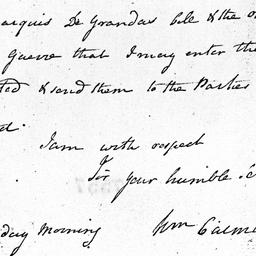 arquis De Grandas bill & the o
Guerre that I may enter the
ted & send them to the Parties
d.
I am with respect
Sr your humble
day Morning Wm